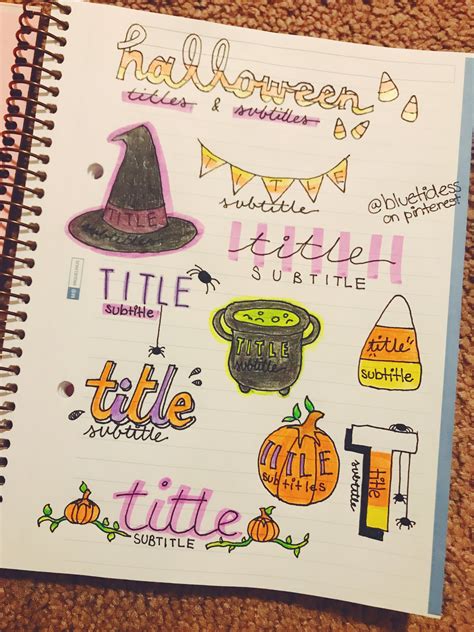 halloween
titles & subtitles
TITLE
subtitle
@bluetidess
on pinterest
TITLE
subtitle
title
SUBTITLE
TITLE
subtitle
TITLE
subtitle
title
subtitle
title
subtitle
TITLE
subtitles
T
title
subtitle
title
SUBTITLE